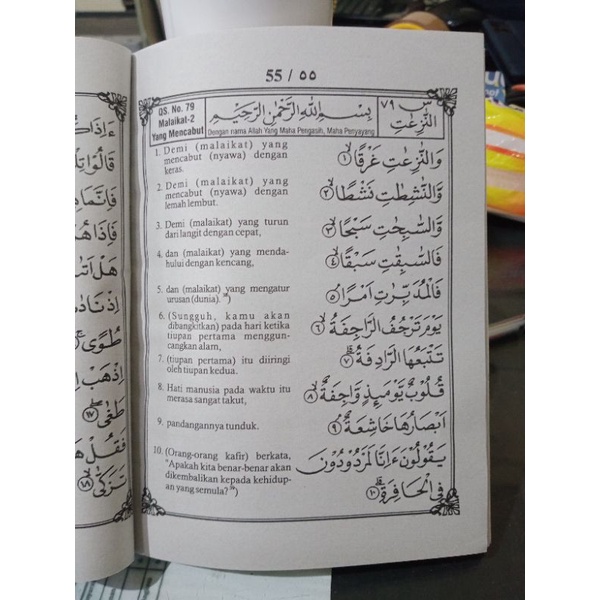 55 / ٥٥
QS. No. 79
Malaikat-2
Yang Mencabut
بِسْمِ اللّٰهِ الرَّحْمٰنِ الرَّحِيْمِ
Dengan nama Allah Yang Maha Pengasih, Maha Penyayang
س ٧٩
النّٰزِعٰتِ
1. Demi (malaikat) yang
mencabut (nyawa) dengan
keras.
وَالنّٰزِعٰتِ غَرْقًاۙ ١
2. Demi (malaikat) yang
mencabut (nyawa) dengan
lemah lembut.
وَّالنّٰشِطٰتِ نَشْطًاۙ ٢
3. Demi (malaikat) yang turun
dari langit dengan cepat,
وَّالسّٰبِحٰتِ سَبْحًاۙ ٣
4. dan (malaikat) yang menda-
hului dengan kencang,
فَالسّٰبِقٰتِ سَبْقًاۙ ٤
5. dan (malaikat) yang mengatur
urusan (dunia).
فَالْمُدَبِّرٰتِ اَمْرًاۘ ٥
6. (Sungguh, kamu akan
dibangkitkan) pada hari ketika
tiupan pertama menggun-
cangkan alam,
يَوْمَ تَرْجُفُ الرَّاجِفَةُۙ ٦
7. (tiupan pertama) itu diiringi
oleh tiupan kedua.
تَتْبَعُهَا الرَّادِفَةُۗ ٧
8. Hati manusia pada waktu itu
merasa sangat takut,
قُلُوْبٌ يَّوْمَىِٕذٍ وَّاجِفَةٌۙ ٨
9. pandangannya tunduk.
اَبْصَارُهَا خَاشِعَةٌۘ ٩
10. (Orang-orang kafir) berkata,
"Apakah kita benar-benar akan
dikembalikan kepada kehidup-
an yang semula?
يَقُوْلُوْنَ ءَاِنَّا لَمَرْدُوْدُوْنَ
فِى الْحَافِرَةِۗ ١٠